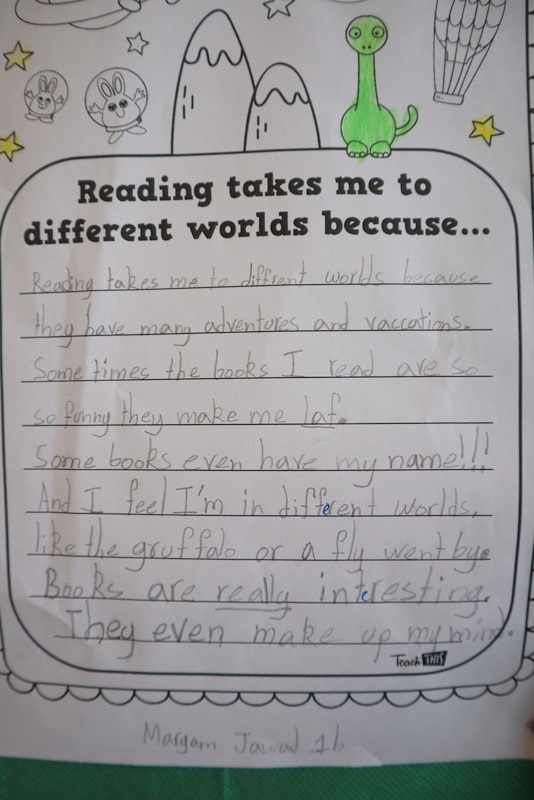 Reading takes me to
different worlds because...
Reading takes me to diffrent worlds because
they have many adventures and vaccations.
Some times the books I read are so
so funny they make me laf.
Some books even have my name!!!
And I feel I'm in different worlds,
like the gruffalo or a fly went bye
Books are really interesting.
They even make up my mind.
Teach THIS
Maryam Jawad 1b